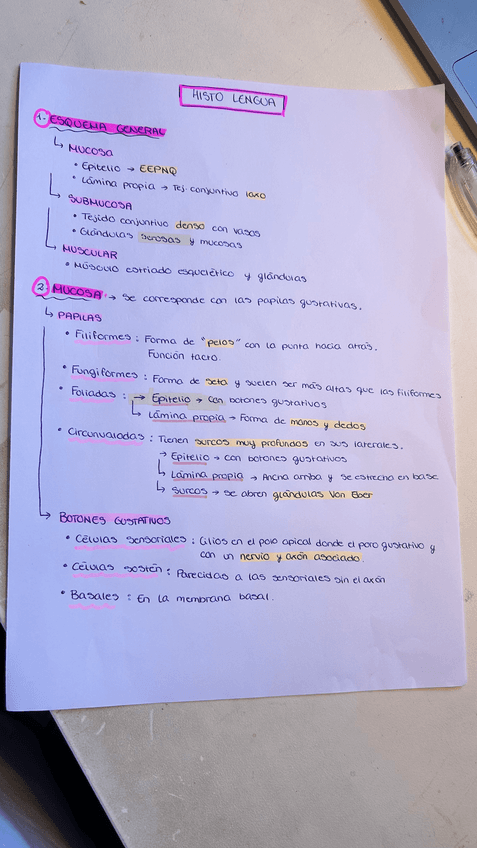 HISTO LENGUA
1. ESQUEMA GENERAL
↳ MUCOSA
• Epitelio → EEPNQ
• Lámina propia → Tej. conjuntivo laxo
↳ SUBMUCOSA
• Tejido conjuntivo denso con vasos
• Glándulas serosas y mucosas
↳ MUSCULAR
• Músculo estriado esquelético y glándulas
2. MUCOSA → Se corresponde con las papilas gustativas.
↳ PAPILAS
• Filiformes : Forma de "pelos" con la punta hacia atrás.
Función tacto.
• Fungiformes : Forma de seta y suelen ser más altas que las filiformes
• Foliadas : → Epitelio → Con botones gustativos
↳ Lámina propia → Forma de manos y dedos
• Circunvaladas : Tienen surcos muy profundos en sus laterales.
→ Epitelio → con botones gustativos
↳ Lámina propia → Ancha arriba y se estrecha en base
↳ Surcos → Se abren glándulas Von Eber
↳ BOTONES GUSTATIVOS
• Células sensoriales : Cilios en el polo apical donde el poro gustativo y
con un nervio y axón asociado.
• Células sostén : Parecidas a las sensoriales sin el axón
• Basales : En la membrana basal.